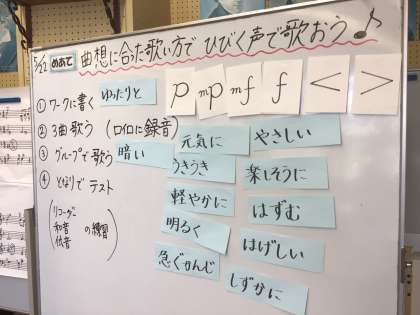 5/22 めあて 曲想に合った歌い方で ひびく声で歌おう♪
p mp mf f < >
① ワークに書く
② 3曲歌う (ロイロに録音)
③ グループで歌う
④ となりで テスト
(リコーダー 和音 低音 の練習)
ゆったりと
暗い
元気に
うきうき
軽やかに
明るく
急ぐかんじ
やさしい
楽しそうに
はずむ
はげしい
しずかに